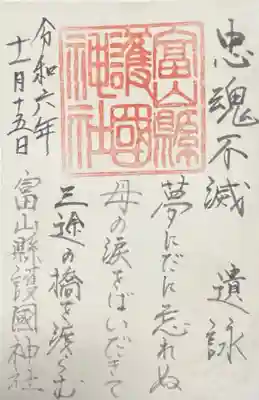 忠魂不滅　遺詠
夢にだに忘れぬ
母の涙をばいだきて
三途の橋を渡らむ
富山縣護國神社
富山縣護國神社
令和六年
十一月十五日